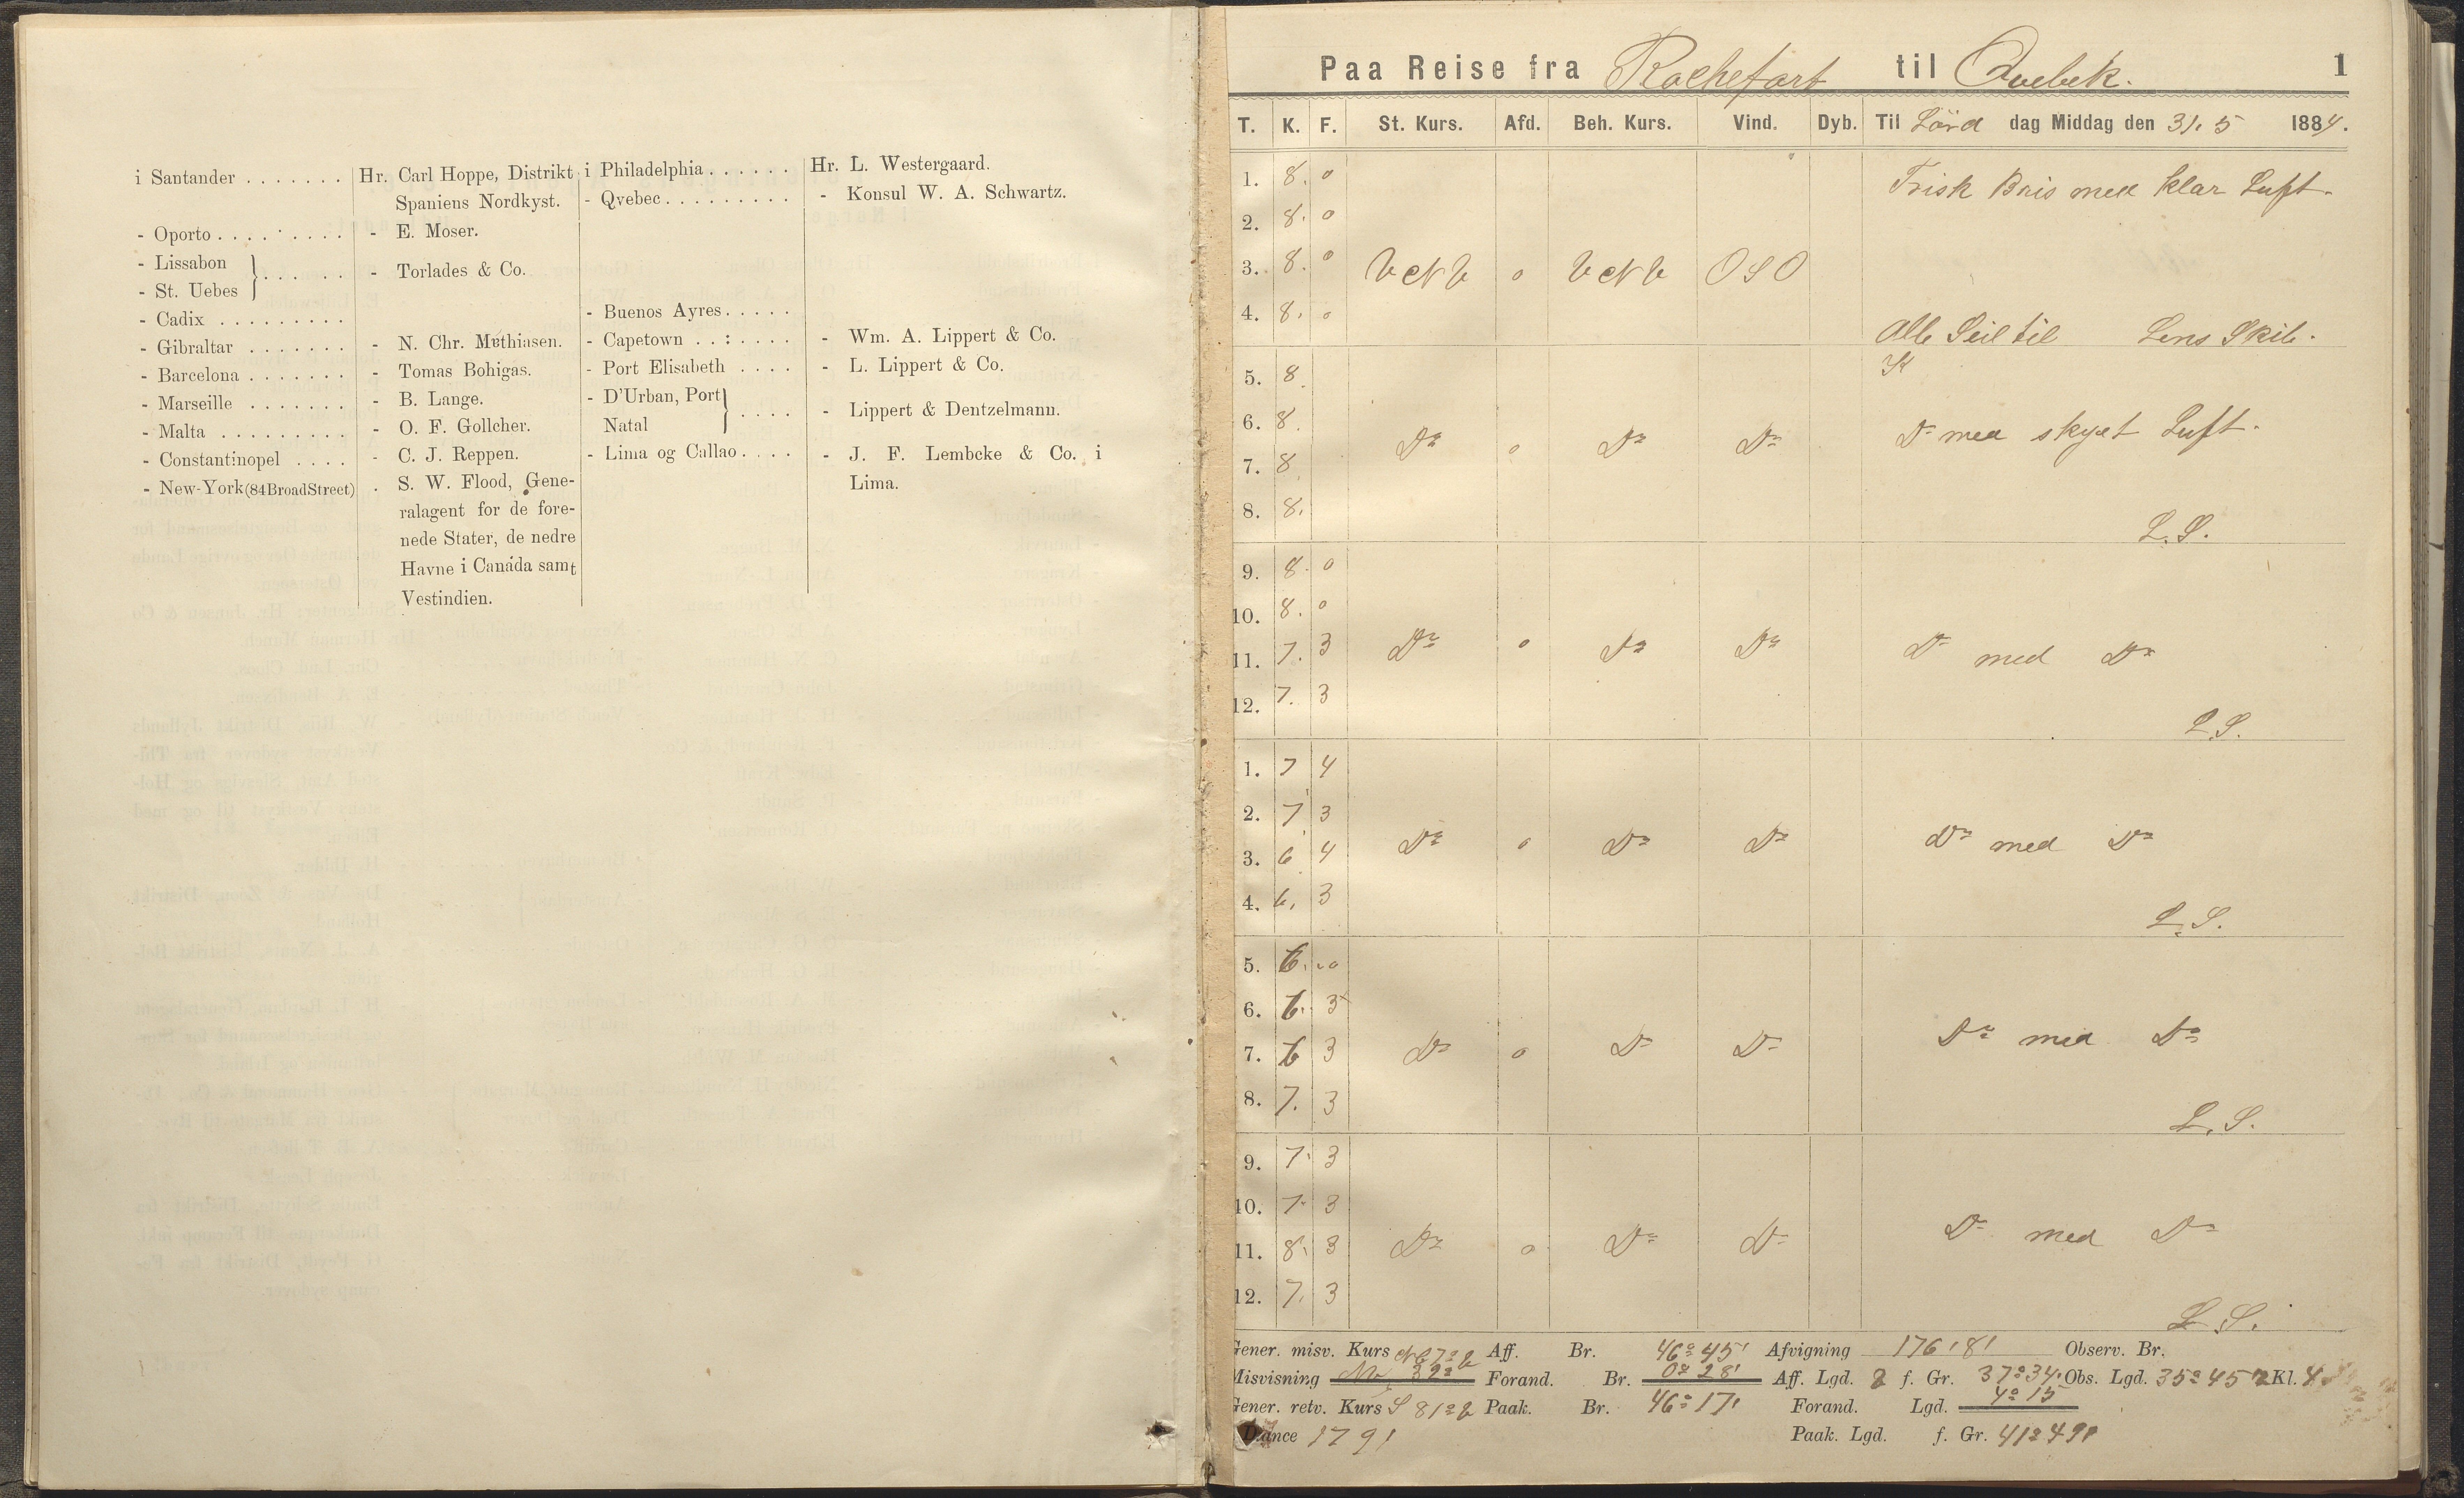 i Santander . . . . . . . Hr. Carl Hoppe, Distrikt
Spaniens Nordkyst.
- Oporto . . . . . . . . . - E. Moser.
- Lissabon
- St. Uebes } . . . . . . - Torlades & Co.
- Cadix . . . . . . . . .
- Gibraltar . . . . . . . - N. Chr. Mathiasen.
- Barcelona . . . . . . . - Tomas Bohigas.
- Marseille . . . . . . . - B. Lange.
- Malta . . . . . . . . . - O. F. Gollcher.
- Constantinopel . . . . - C. J. Reppen.
- New-York (84 Broad Street) . S. W. Flood, Gene-
ralagent for de fore-
nede Stater, de nedre
Havne i Canada samt
Vestindien.
i Philadelphia . . . . . . Hr. L. Westergaard.
- Qvebec . . . . . . . . . - Konsul W. A. Schwartz.
- Buenos Ayres . . . . .
- Capetown . . : . . . . - Wm. A. Lippert & Co.
- Port Elisabeth . . . . - L. Lippert & Co.
- D'Urban, Port
Natal } . . . . - Lippert & Dentzelmann.
- Lima og Callao . . . . - J. F. Lembcke & Co. i
Lima.
Paa Reise fra Rochefort til Qvebek. 1
T. K. F. St. Kurs. Afd. Beh. Kurs. Vind. Dyb. Til Lörd dag Middag den 31. 5 1884.
1. 8. 0 Frisk Bris med klar Luft.
2. 8. 0
3. 8. 0 V N V 0 V N V O S O
4. 8. 0 Alle Seil til Lens Skib.
5. 8
6. 8. Do 0 Do Do Do med skyet Luft.
7. 8
8. 8. L.S.
9. 8. 0
10. 8. 0
11. 7. 3 Do 0 Do Do Do med Do
12. 7. 3 L.S.
1. 7 4
2. 7 3
3. 6 4 Do 0 Do Do Do med Do
4. 6, 3 L.S.
5. 6.
6. 6. 3
7. 6 3 Do 0 Do Do Do med Do
8. 7. 3 L.S.
9. 7. 3
10. 7. 3
11. 8. 3 Do 0 Do Do Do med Do
12. 7. 3 L.S.
Gener. misv. Kurs Aff. Br. 46° 45' Afvigning 176,8' Observ. Br.
Misvisning 32° Forand. Br. 0° 28' Aff. Lgd. f. Gr. 37° 34' Obs. Lgd. 35° 45 Kl. 4
Gener. retv. Kurs S 81° V Paak. Br. 46° 17' Forand. Lgd. 4° 15
179' Paak. Lgd. f. Gr. 41° 49'